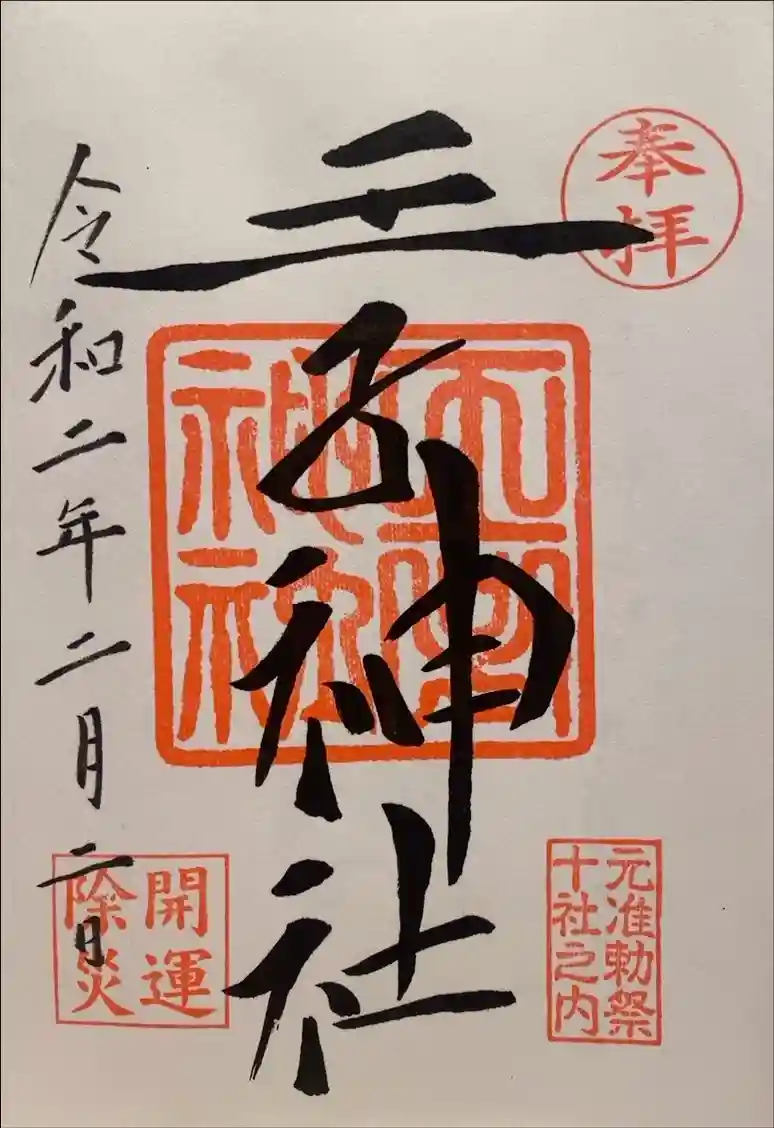 奉拝
王子神社
元准勅祭
十社之内
令和二年二月二日
開運
除災